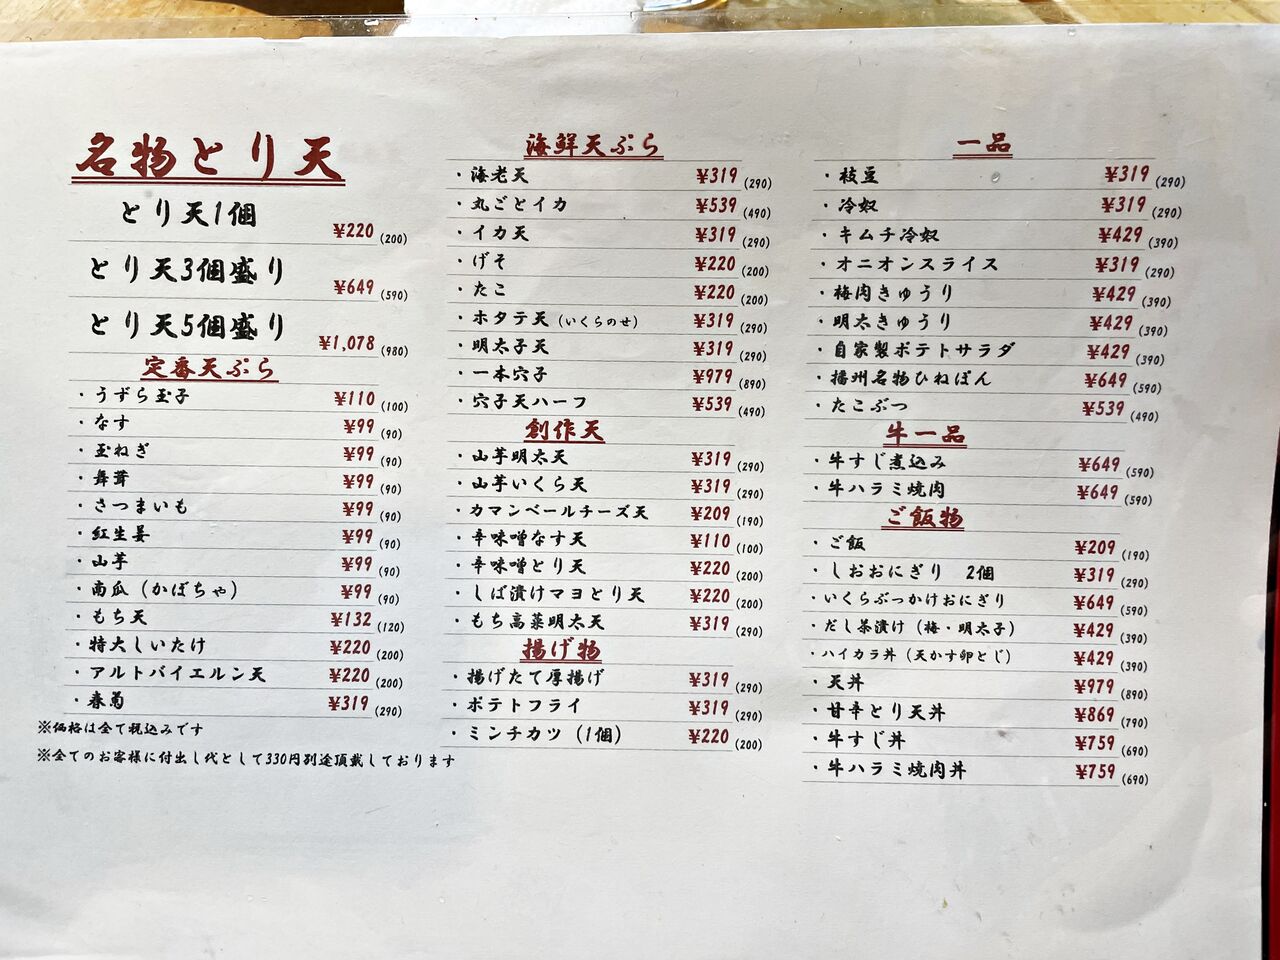 名物とり天
とり天1個 ¥220 (200)
とり天3個盛り ¥649 (590)
とり天5個盛り ¥1,078 (980)
定番天ぷら
・うずら玉子 ¥110 (100)
・なす ¥99 (90)
・玉ねぎ ¥99 (90)
・舞茸 ¥99 (90)
・さつまいも ¥99 (90)
・紅生姜 ¥99 (90)
・山芋 ¥99 (90)
・南瓜（かぼちゃ） ¥99 (90)
・もち天 ¥132 (120)
・特大しいたけ ¥220 (200)
・アルトバイエルン天 ¥220 (200)
・春菊 ¥319 (290)
※価格は全て税込みです
※全てのお客様に付出し代として330円別途頂戴しております
海鮮天ぷら
・海老天 ¥319 (290)
・丸ごとイカ ¥539 (490)
・イカ天 ¥319 (290)
・げそ ¥220 (200)
・たこ ¥220 (200)
・ホタテ天（いくらのせ） ¥319 (290)
・明太子天 ¥319 (290)
・一本穴子 ¥979 (890)
・穴子天ハーフ ¥539 (490)
創作天
・山芋明太天 ¥319 (290)
・山芋いくら天 ¥319 (290)
・カマンベールチーズ天 ¥209 (190)
・辛味噌なす天 ¥110 (100)
・辛味噌とり天 ¥220 (200)
・しば漬けマヨとり天 ¥220 (200)
・もち高菜明太天 ¥319 (290)
揚げ物
・揚げたて厚揚げ ¥319 (290)
・ポテトフライ ¥319 (290)
・ミンチカツ（1個） ¥220 (200)
一品
・枝豆 ¥319 (290)
・冷奴 ¥319 (290)
・キムチ冷奴 ¥429 (390)
・オニオンスライス ¥319 (290)
・梅肉きゅうり ¥429 (390)
・明太きゅうり ¥429 (390)
・自家製ポテトサラダ ¥429 (390)
・播州名物ひねぽん ¥649 (590)
・たこぶつ ¥539 (490)
牛一品
・牛すじ煮込み ¥649 (590)
・牛ハラミ焼肉 ¥649 (590)
ご飯物
・ご飯 ¥209 (190)
・しおおにぎり 2個 ¥319 (290)
・いくらぶっかけおにぎり ¥649 (590)
・だし茶漬け（梅・明太子） ¥429 (390)
・ハイカラ丼（天かす卵とじ） ¥429 (390)
・天丼 ¥979 (890)
・甘辛とり天丼 ¥869 (790)
・牛すじ丼 ¥759 (690)
・牛ハラミ焼肉丼 ¥759 (690)